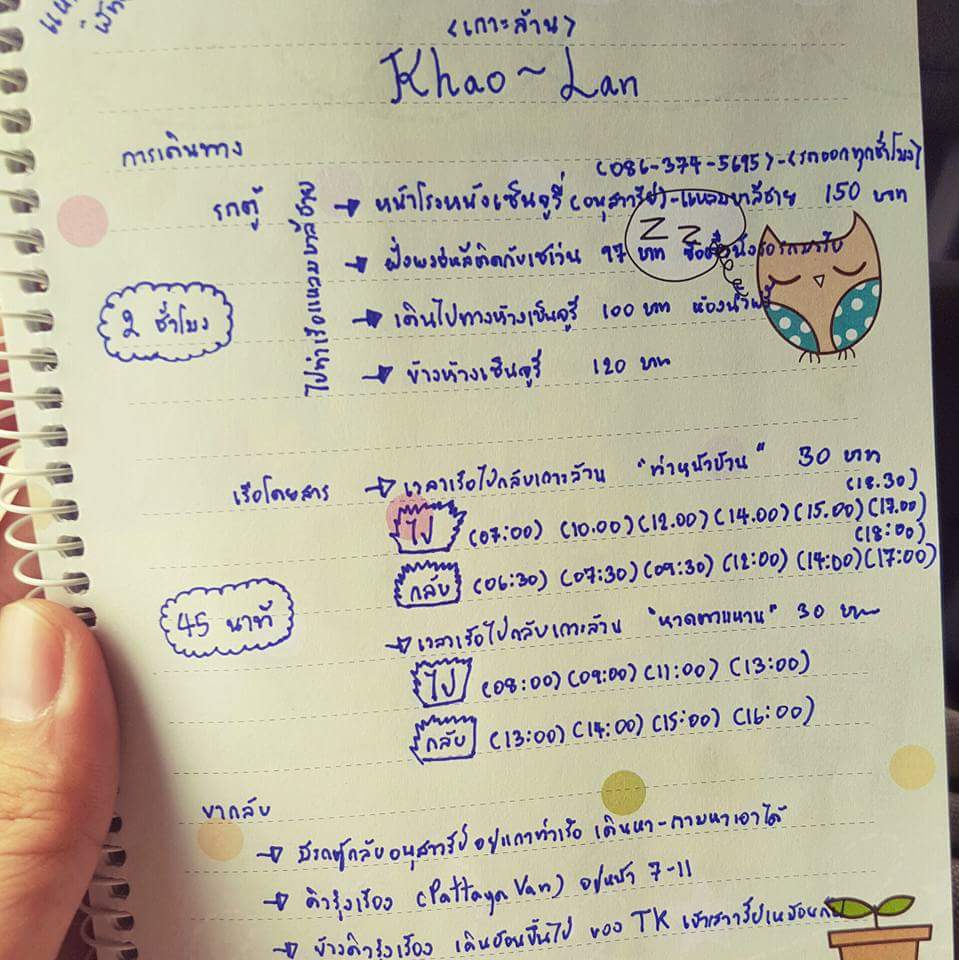 <เกาะล้าน>
Khao~Lan
การเดินทาง
(086-374-5695)-(รถออกทุกชั่วโมง)
รถตู้ → หน้าโรงหนังเซ็นจูรี่ (อนุสาวรีย์)-แหลมบาลีฮาย 150 บาท
ไปท่าเรือแหลมบาลีฮาย
Z Z
→ ฝั่งพงหลีติดกับเซเว่น 97 บาท
2 ชั่วโมง
→ เดินไปทางห้างเซ็นจูรี่ 100 บาท ห้องน้ำฟรี
→ ข้างห้างเซ็นจูรี่ 120 บาท
เรือโดยสาร → เวลาเรือไปกลับเกาะล้าน "ท่าหน้าบ้าน" 30 บาท
(18.30)
ไป (07:00) (10.00) (12.00) (14.00) (15.00) (17.00)
(18:00)
กลับ (06:30) (07:30) (09:30) (12:00) (14:00) (17:00)
45 นาที
→ เวลาเรือไปกลับเกาะล้าน "หาดตาแหวน" 30 บาท
ไป (08:00) (09:00) (11:00) (13:00)
กลับ (13:00) (14:00) (15:00) (16:00)
ขากลับ
→ มีรถตู้กลับอนุสาวรีย์ อยู่แถวท่าเรือ เดินหา-ถามหาเอาได้
→ คิวรุ่งเรือง (Pattaya Van) อยู่หน้า 7-11
→ ข้างคิวรุ่งเรือง เดินย้อนขึ้นไป ของ TK เข้าอนุสาวรีย์เหมือนกัน